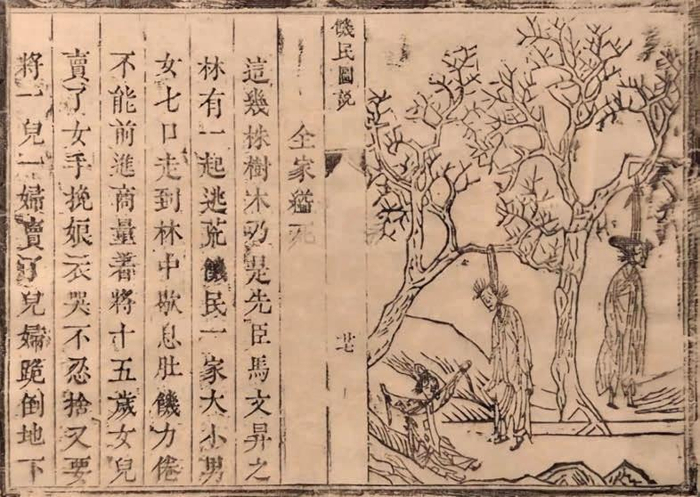 饑民圖說
廿七
全家縊死
這幾株樹木乃是先臣馬文昇之
林有一起逃荒饑民一家大小男
女七口走到林中歇息肚饑力倦
不能前進商量着將十五歲女兒
賣了女手挽娘衣哭不忍捨又要
將一兒一婦賣了兒婦跪倒地下